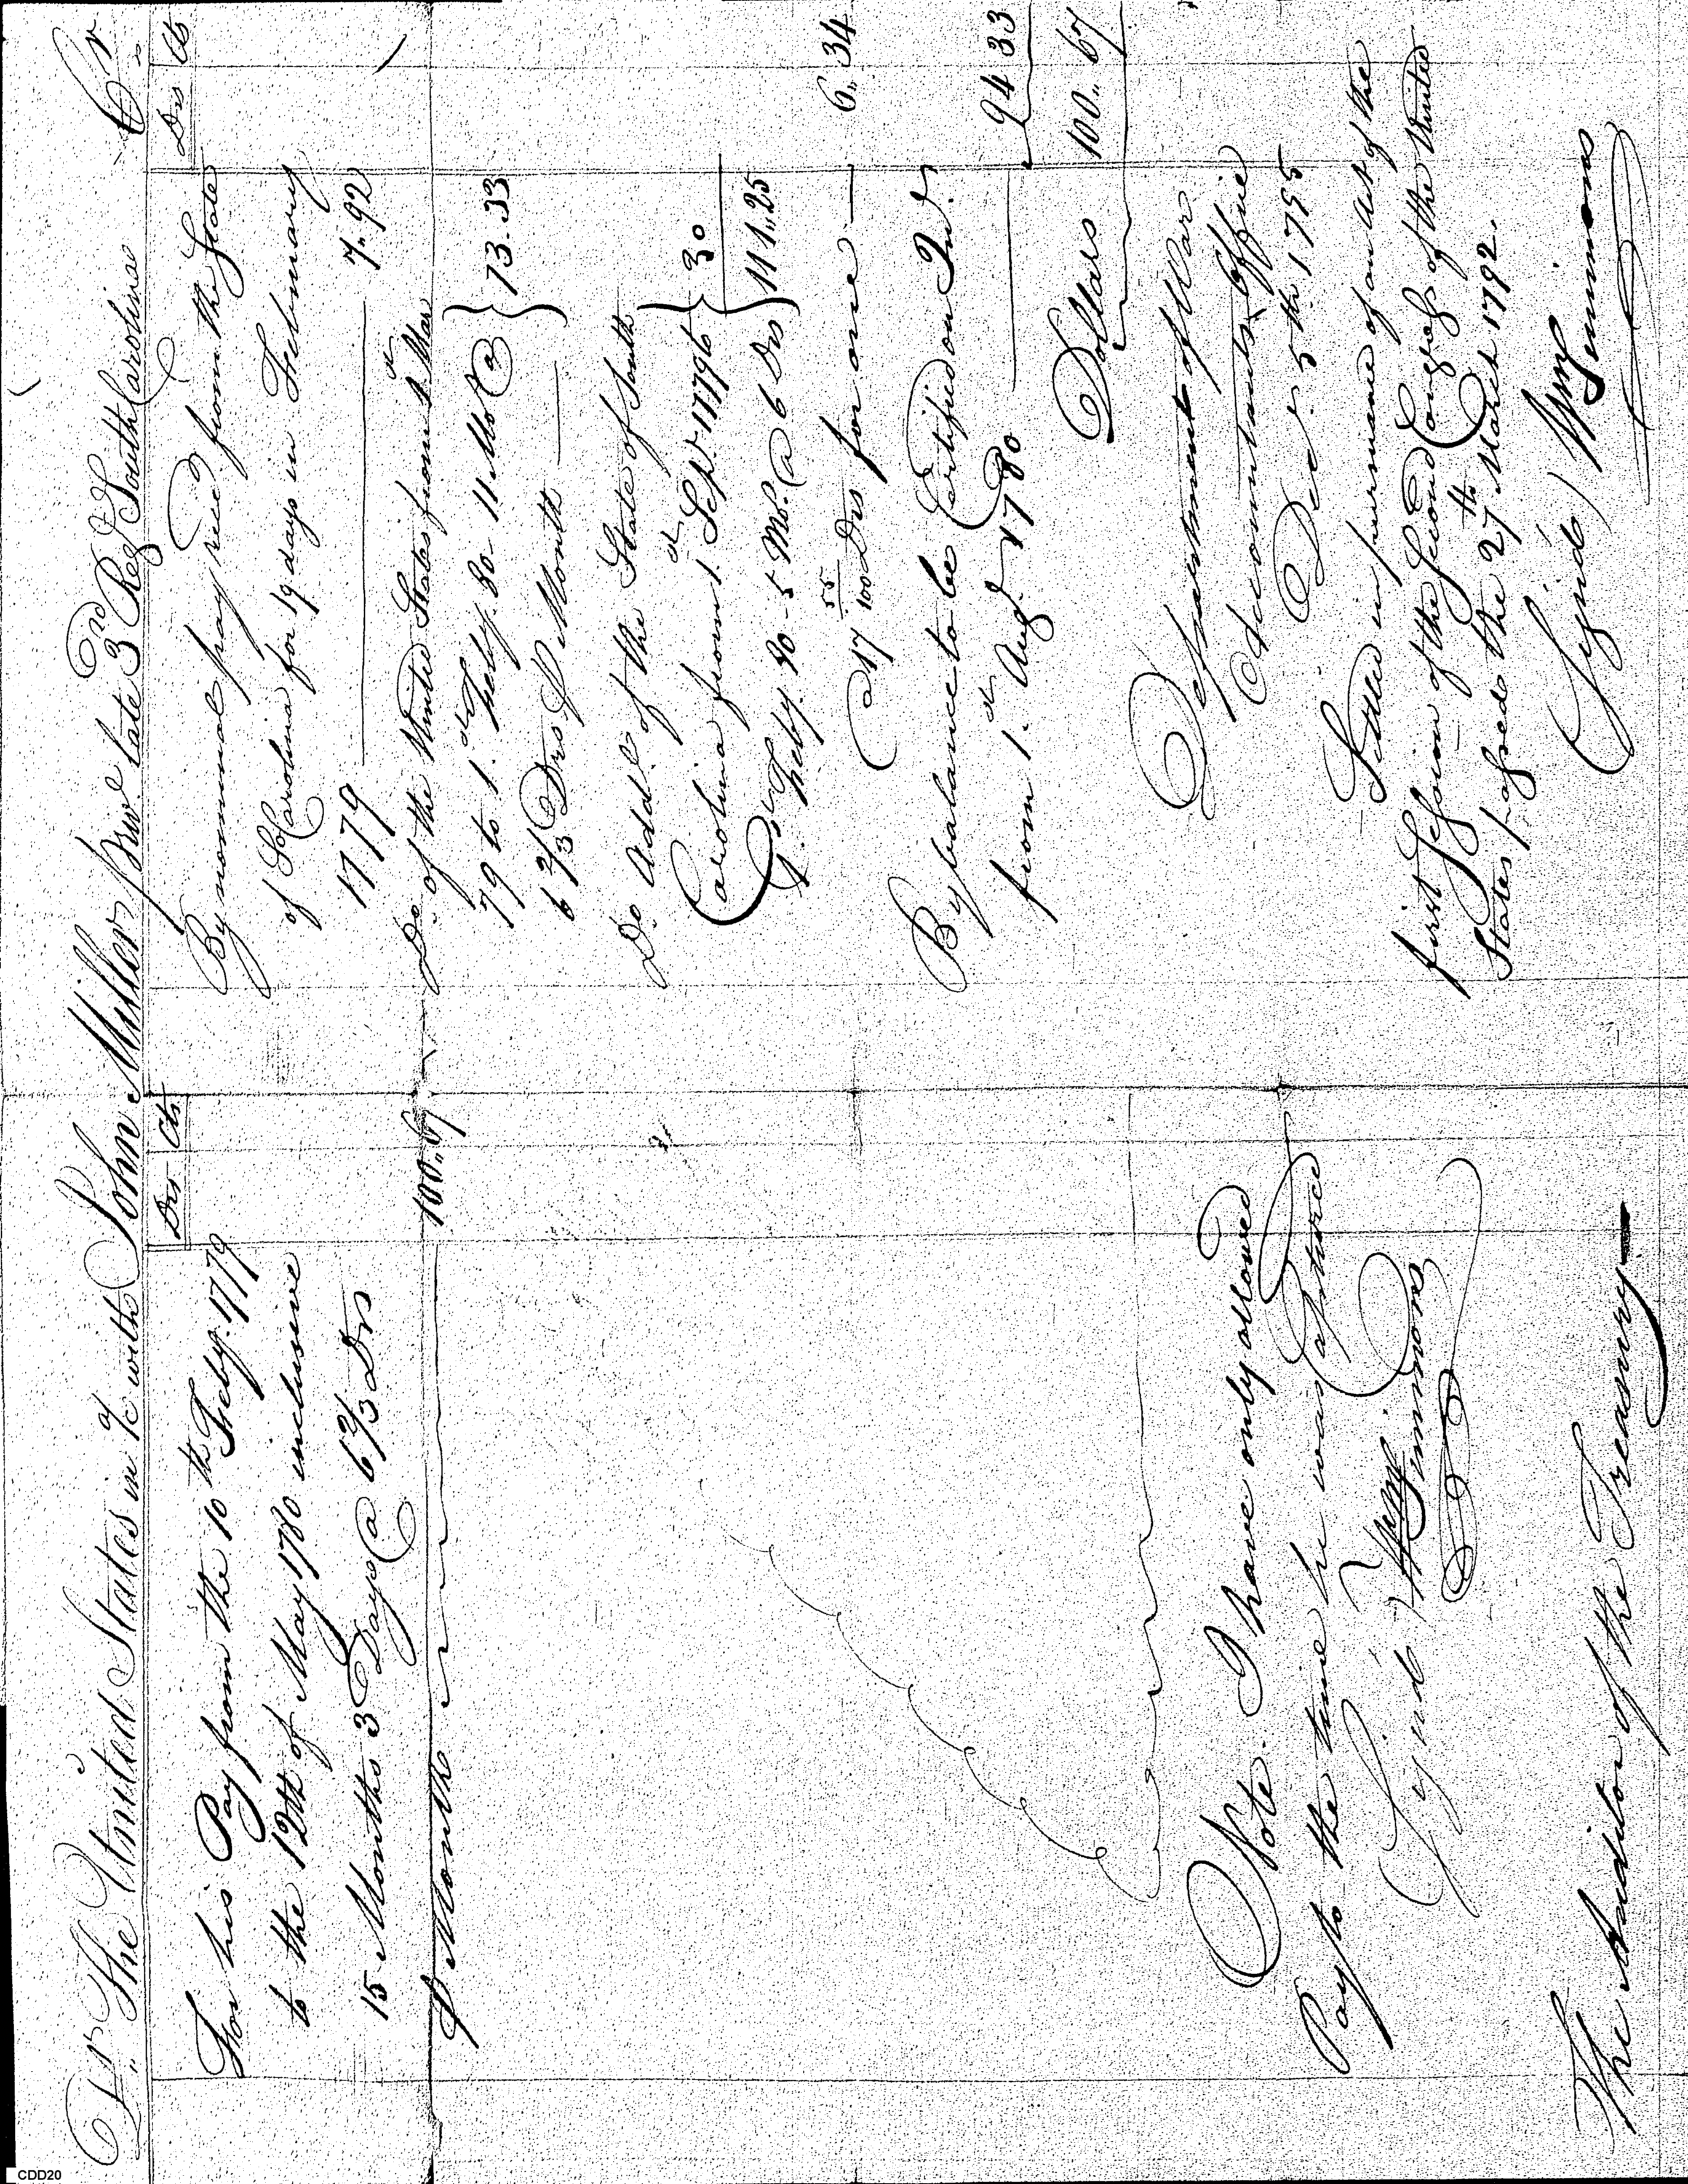 Dr. The United States in a/c with John Miller priv. late 3rd Reg South Carolina Cr.
Drs Cts
For his Pay from the 10th Feby. 1779
to the 12th of May 1780 inclusive
15 Months 3 Days @ 6 2/3 Drs
P Month 100.. 67
Note. I have only allowed
Pay to the time he was Captured
Signd) Wm Simmons
The Auditor of the Treasury
Drs Cts
By nominal pay recd from the State
of S Carolina for 19 days in February
1779 7.. 92
Do. of the United States from 1.st Mar
79 to 1.st Feby. 80 11 Mos @
6 2/3 Drs P Month 73. 33
Do Addl. of the State of South
Carolina from 1.st Sept. 1779 to 30
1.st Feby. 80 - 5 Mo. @ 6 Drs 111.. 25
@ 17 55/100 Drs for one 6.. 34
By balance to be Certified on Int.
from 1.st Aug. 1780 94 33
Dollars 100.. 67
Department of War
Accountants Office
Decr. 5th 1795
Settled in pursuance of an Act of the
first Session of the Second Congress of the United
States passed the 27th March 1792.
(Signed) Wm Simmons
CDD20